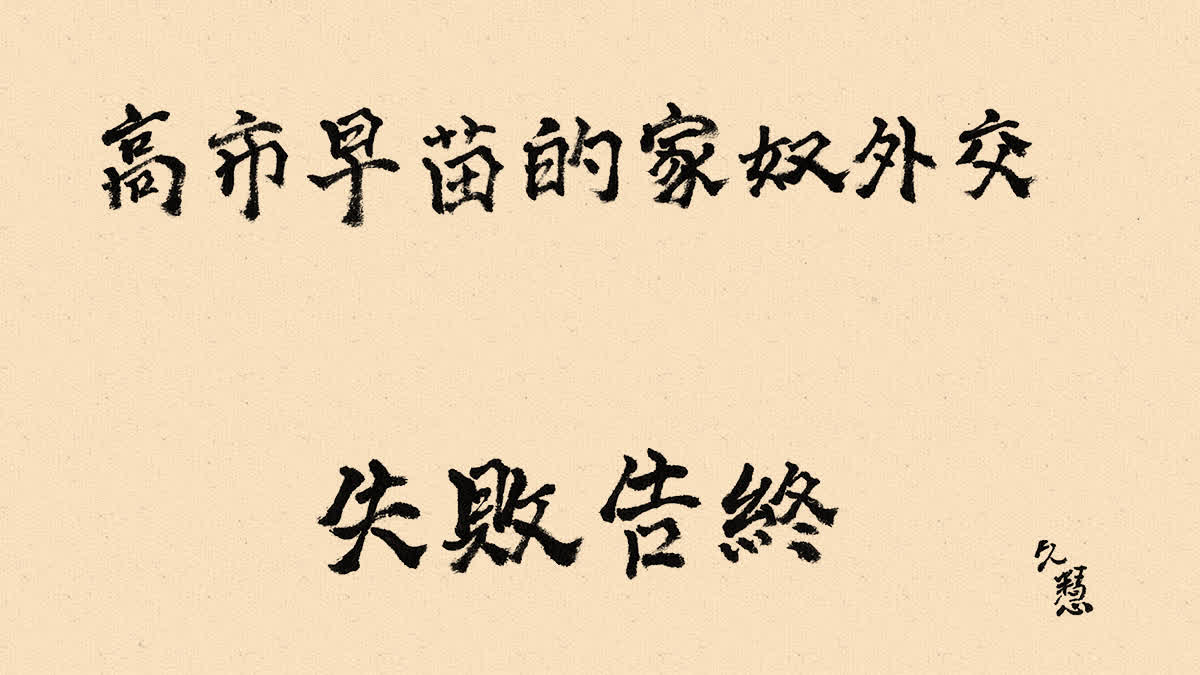 高市早苗的家奴外交
失敗告終